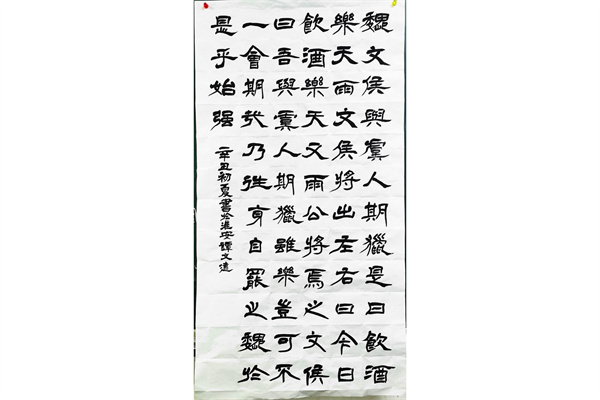 魏文侯與虞人期獵是日飲酒
樂天雨文侯將出左右曰今日
飲酒樂天又雨公將焉之文侯
曰吾與虞人期獵雖樂豈可不
一會期哉乃往身自罷之魏於
是乎始强
辛丑初夏書於淮安譚文遠